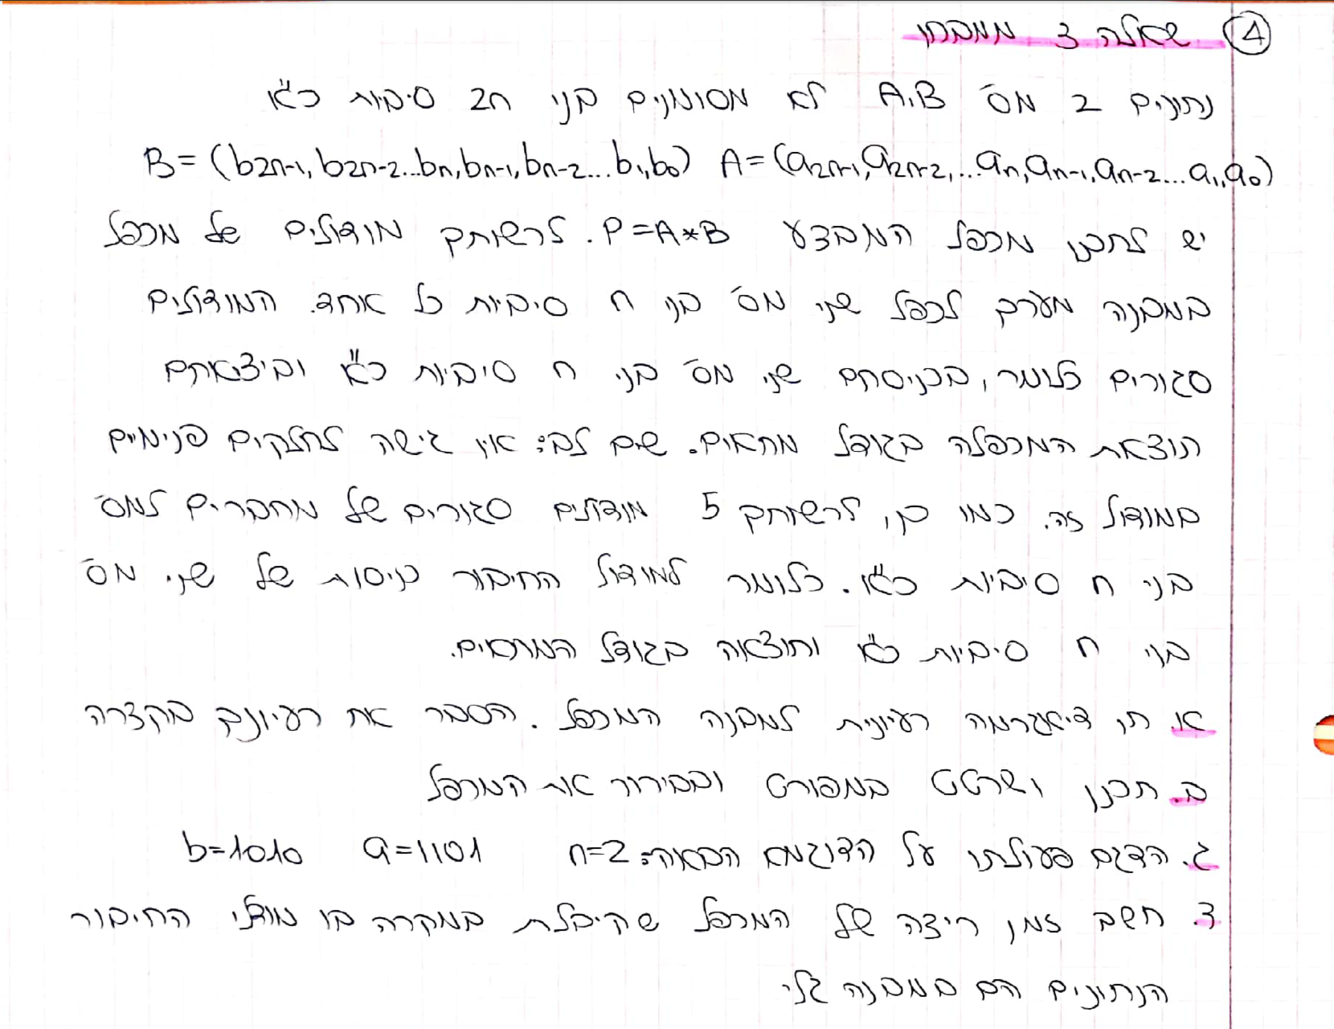 ④ שאלה 3 ממבחן
נתונים 2 מס' A,B לא מסומנים בני 2n סיביות כ"א
B=(b2n-1,b2n-2...bn,bn-1,bn-2...b1,b0) A=(a2n-1,a2n-2,...an,an-1,an-2...a1,a0)
יש לתכנן מכפל המבצע P=A*B. לרשותך מודולים של מכפל
במבנה מערך לכפל שני מס' בני n סיביות כל אחד. המודולים
סגורים כלומר, בכניסתם שני מס' בני n סיביות כ"א וביציאתם
תוצאת המכפלה בגודל מתאים. שים לב: אין גישה לחלקים פנימיים
במודול זה. כמו כן, לרשותך 5 מודולים סגורים של מחברים למס'
בני n סיביות כ"א. כלומר למודול החיבור כניסות של שני מס'
בני n סיביות כ"א ותוצאה בגודל המתאים.
א. תן דיאגרמה רעיונית למבנה המכפל. הסבר את רעיונך בקצרה
ב. תכנן ושרטט במפורט ובבירור את המכפל
ג. הדגם פעולתו על הדוגמא הבאה: n=2 a=1101 b=1010
ד. חשב זמן ריצה של המכפל שקיבלת במקרה בו מודולי החיבור
הנתונים הם במבנה גלי